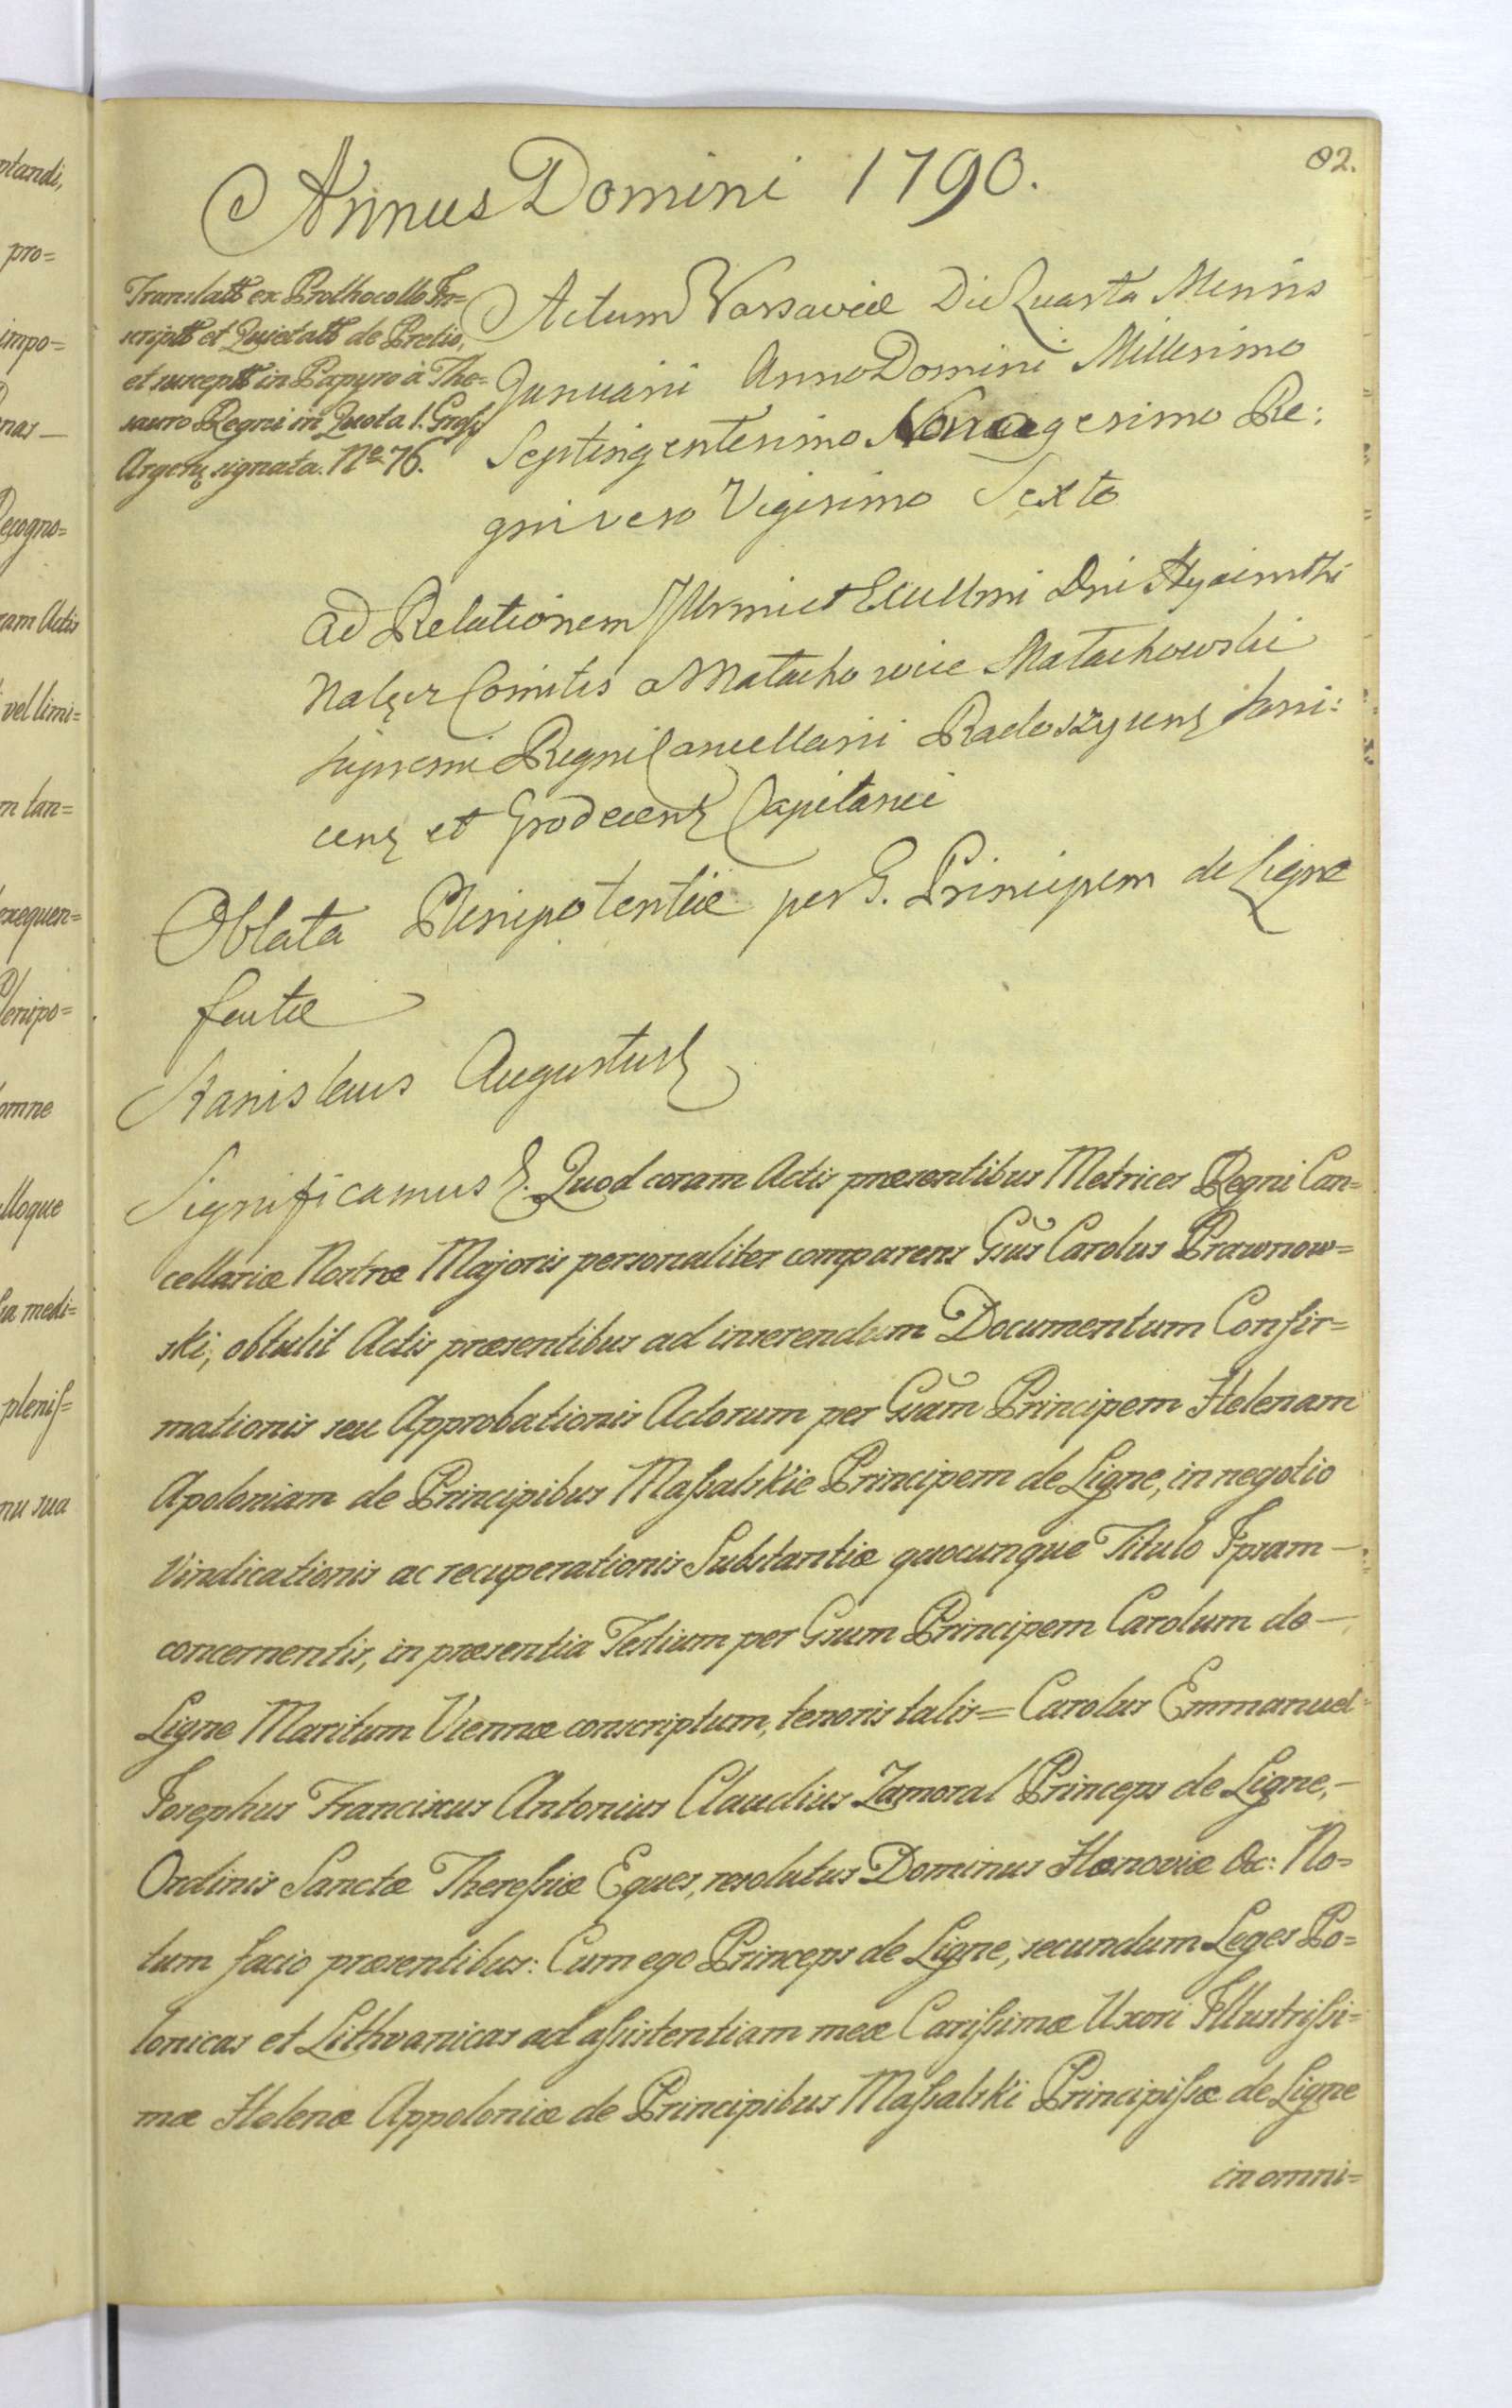 82.
Annus Domini 1790.
Translatt ex Prothocollo In=
scriptt et Quietatt de Pretio,
et suscept in Papyro à The=
sauro Regni in Quota 1. Gross
Argenſ signata. No 76.
Actum Varsaviæ Die Quarta Mensis
Januarii Anno Domini Millesimo
Septingentesimo Nonagesimo Re:
gni vero Vigesimo Sexto
Ad Relationem Illrmi et Excellmi Dni Hyacinthi
Nalęcz Comitis a Małachowice Małachowski
supremi Regni Cancellarii Radoszycenſ Sani:
cenſ et Grodecenſ Capitanei
Oblata Plenipotentiæ per G. Principem de Ligne
factæ
Stanislaus Augustus
Significamus &. Quod coram Actis præsentibus Metrices Regni Can=
cellariæ Nostræ Majoris personaliter comparens Gsus Carolus Prawnow=
ski, obtulit Actis præsentibus ad inserendum Documentum Confir=
mationis seu Approbationis Actorum per Gsam Principem Helenam
Apoloniam de Principibus Maſsalskie Principem de Ligne, in negotio
Vindicationis ac recuperationis Substantiæ quocunque Titulo Ipsam—
concernentis, in præsentia Testium per Gsum Principem Carolum de—
Ligne Maritum Viennæ conscriptum, tenoris talis= Carolus Emmanuel
Josephus Franciscus Antonius Claudius Lamoral Princeps de Ligne,—
Ordinis Sanctæ Thereſsiæ Eques, resolutus Dominus Hanoviæ &c: No=
tum facio præsentibus: Cum ego Princeps de Ligne, secundum Leges Po=
lonicas et Lithvanicas ad aſsistentiam meæ Cariſsimæ Uxori Illustriſsi=
mæ Helenæ Appoloniæ de Principibus Maſsalski Principiſsæ de Ligne
in omni=
ntandi,
pro=
impo=
nas—
Recogno=
ram Actis
vel limi=
m tan=
exequen=
Plenipo=
omne
lloque
sa medi=
pleniſ=
nu sua